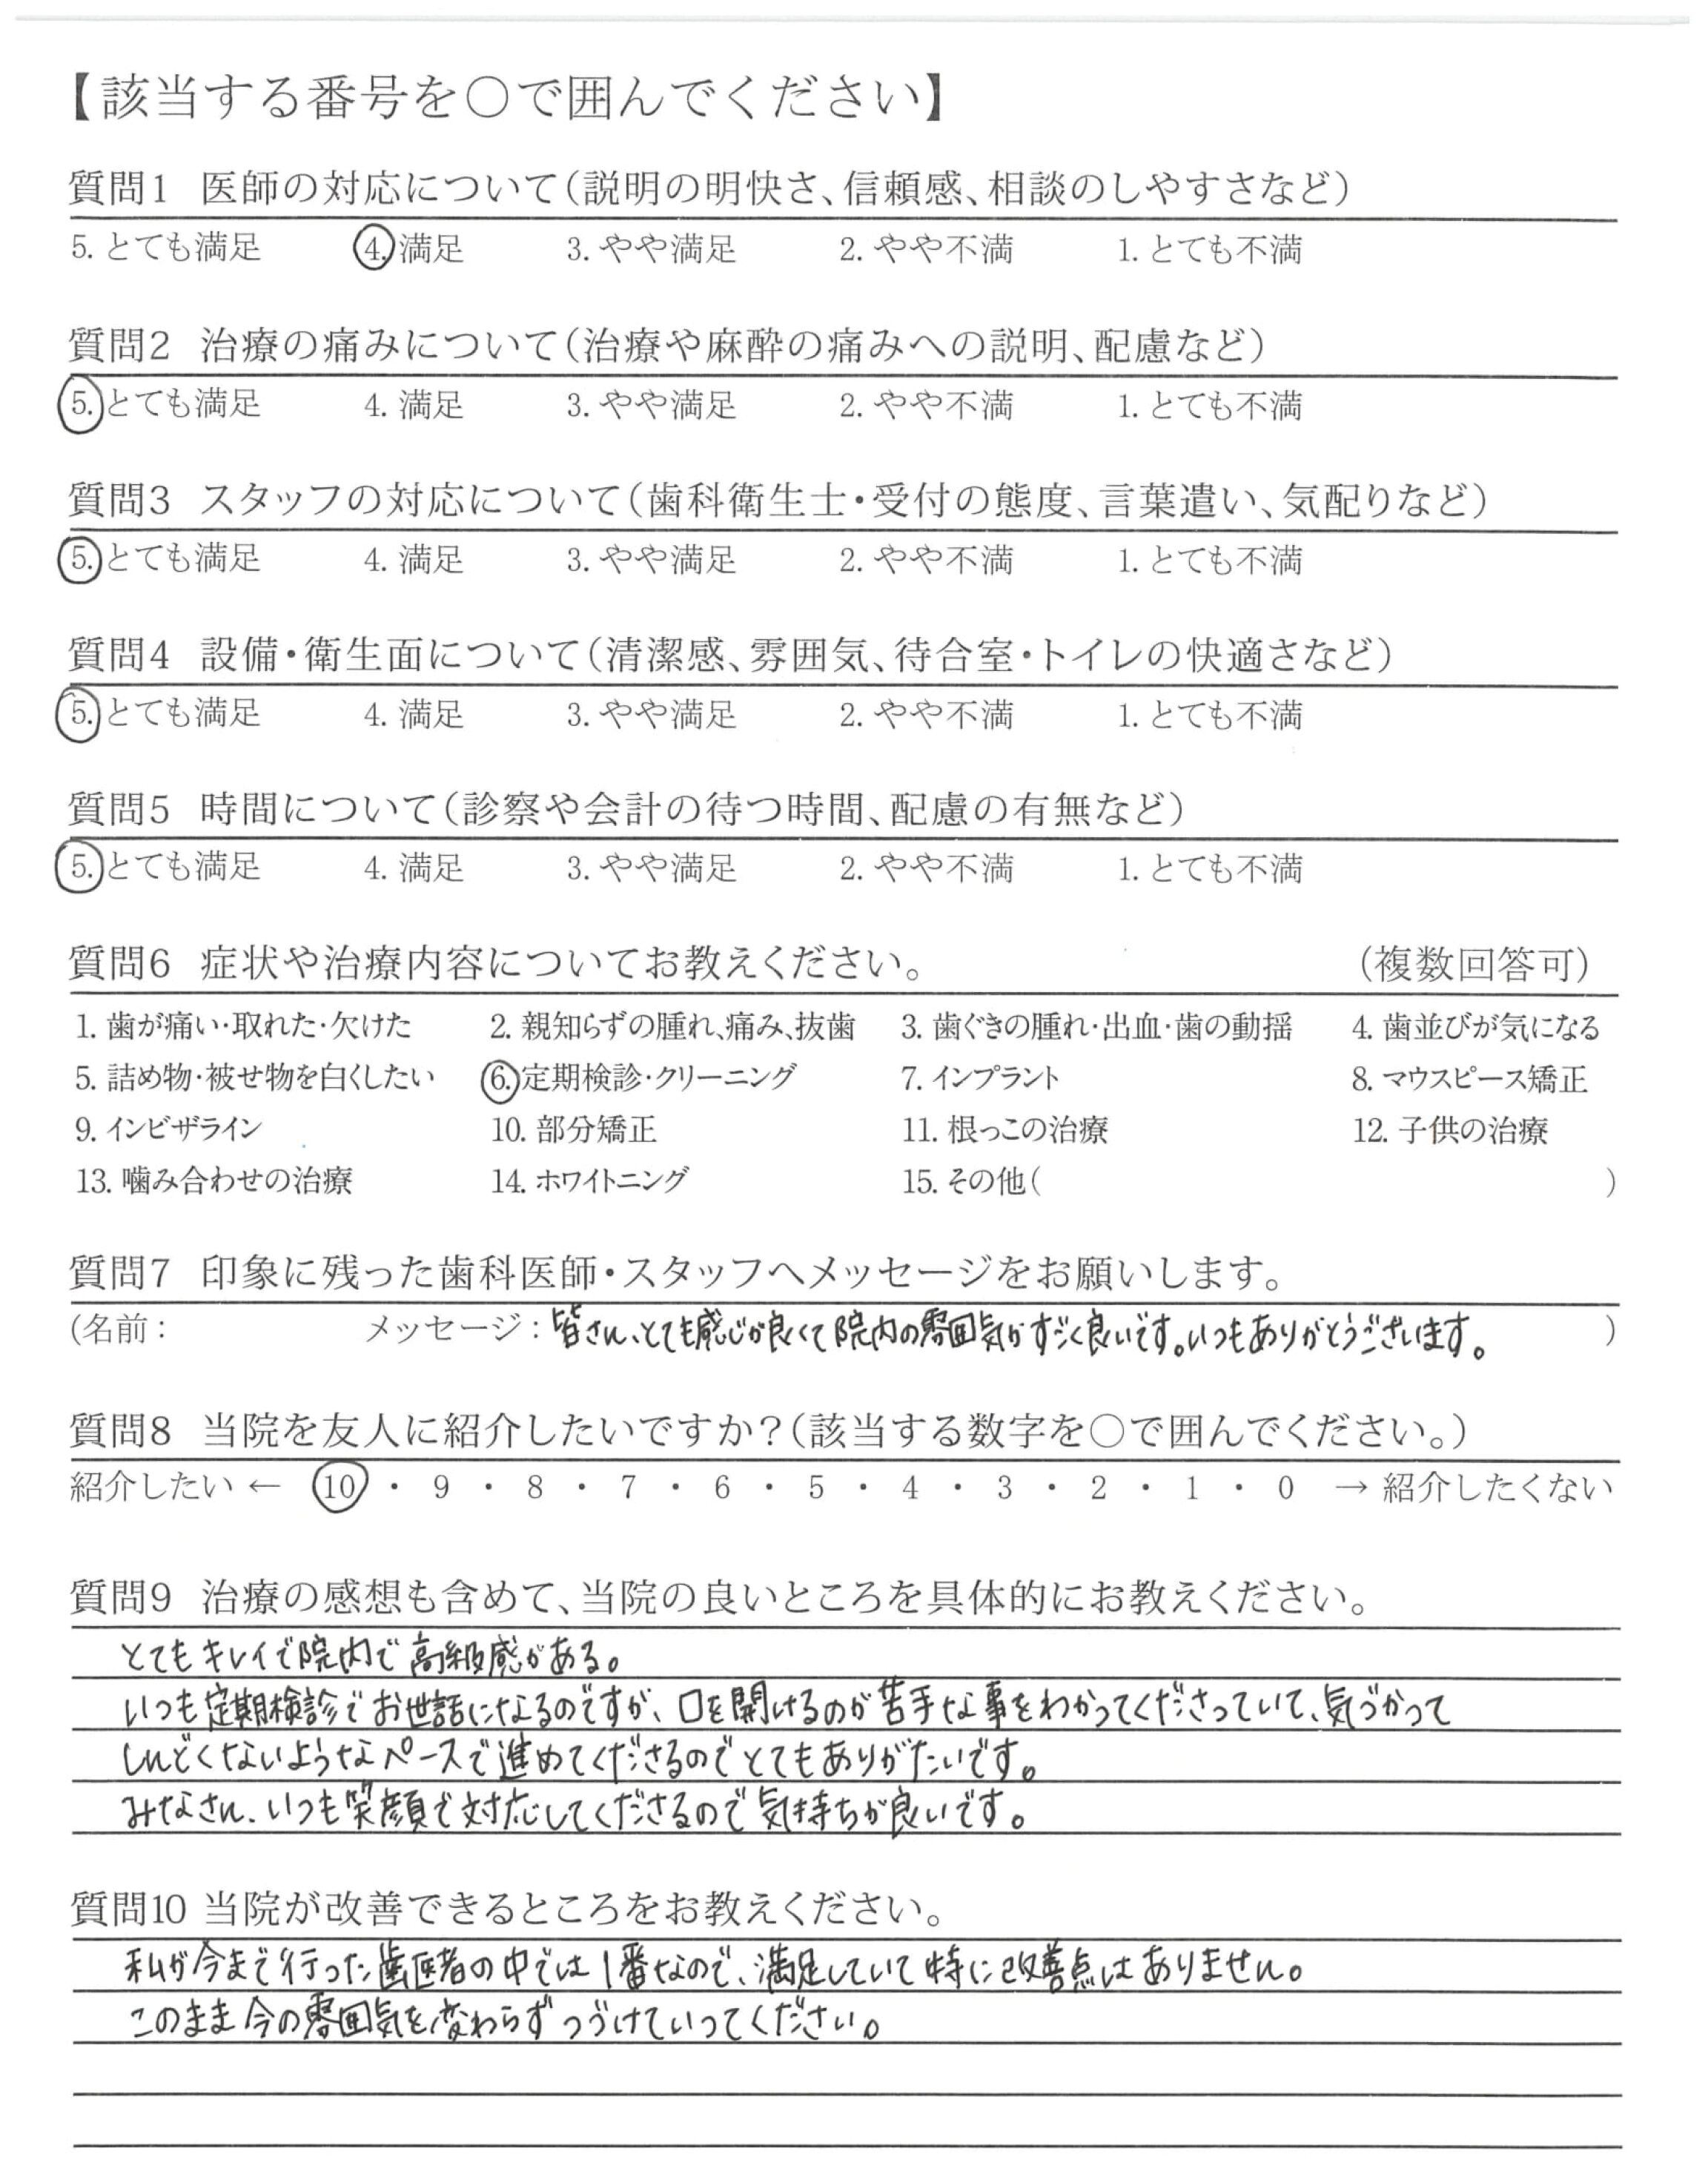 【該当する番号を○で囲んでください】
質問1 医師の対応について(説明の明快さ、信頼感、相談のしやすさなど)
5. とても満足 4. 満足 3. やや満足 2. やや不満 1. とても不満
質問2 治療の痛みについて(治療や麻酔の痛みへの説明、配慮など)
5. とても満足 4. 満足 3. やや満足 2. やや不満 1. とても不満
質問3 スタッフの対応について(歯科衛生士・受付の態度、言葉遣い、気配りなど)
5. とても満足 4. 満足 3. やや満足 2. やや不満 1. とても不満
質問4 設備・衛生面について(清潔感、雰囲気、待合室・トイレの快適さなど)
5. とても満足 4. 満足 3. やや満足 2. やや不満 1. とても不満
質問5 時間について(診察や会計の待つ時間、配慮の有無など)
5. とても満足 4. 満足 3. やや満足 2. やや不満 1. とても不満
質問6 症状や治療内容についてお教えください。 (複数回答可)
1. 歯が痛い・取れた・欠けた 2. 親知らずの腫れ、痛み、抜歯 3. 歯ぐきの腫れ・出血・歯の動揺 4. 歯並びが気になる
5. 詰め物・被せ物を白くしたい 6. 定期検診・クリーニング 7. インプラント 8. マウスピース矯正
9. インビザライン 10. 部分矯正 11. 根っこの治療 12. 子供の治療
13. 噛み合わせの治療 14. ホワイトニング 15. その他( )
質問7 印象に残った歯科医師・スタッフへメッセージをお願いします。
(名前: メッセージ:皆さん、とても感じが良くて院内の雰囲気がすごく良いです。いつもありがとうございます。 )
質問8 当院を友人に紹介したいですか?(該当する数字を○で囲んでください。)
紹介したい ← 10 ・ 9 ・ 8 ・ 7 ・ 6 ・ 5 ・ 4 ・ 3 ・ 2 ・ 1 ・ 0 → 紹介したくない
質問9 治療の感想も含めて、当院の良いところを具体的にお教えください。
とてもキレイで院内で高級感がある。
いつも定期検診でお世話になるのですが、口を開けるのが苦手な事をわかってくださっていて、気づかって
しんどくないようなペースで進めてくださるのでとてもありがたいです。
みなさん、いつも笑顔で対応してくださるので気持ちが良いです。
質問10 当院が改善できるところをお教えください。
私が今まで行った歯医者の中では1番なので、満足していて特に改善点はありません。
このまま今の雰囲気を変わらずつづけていってください。